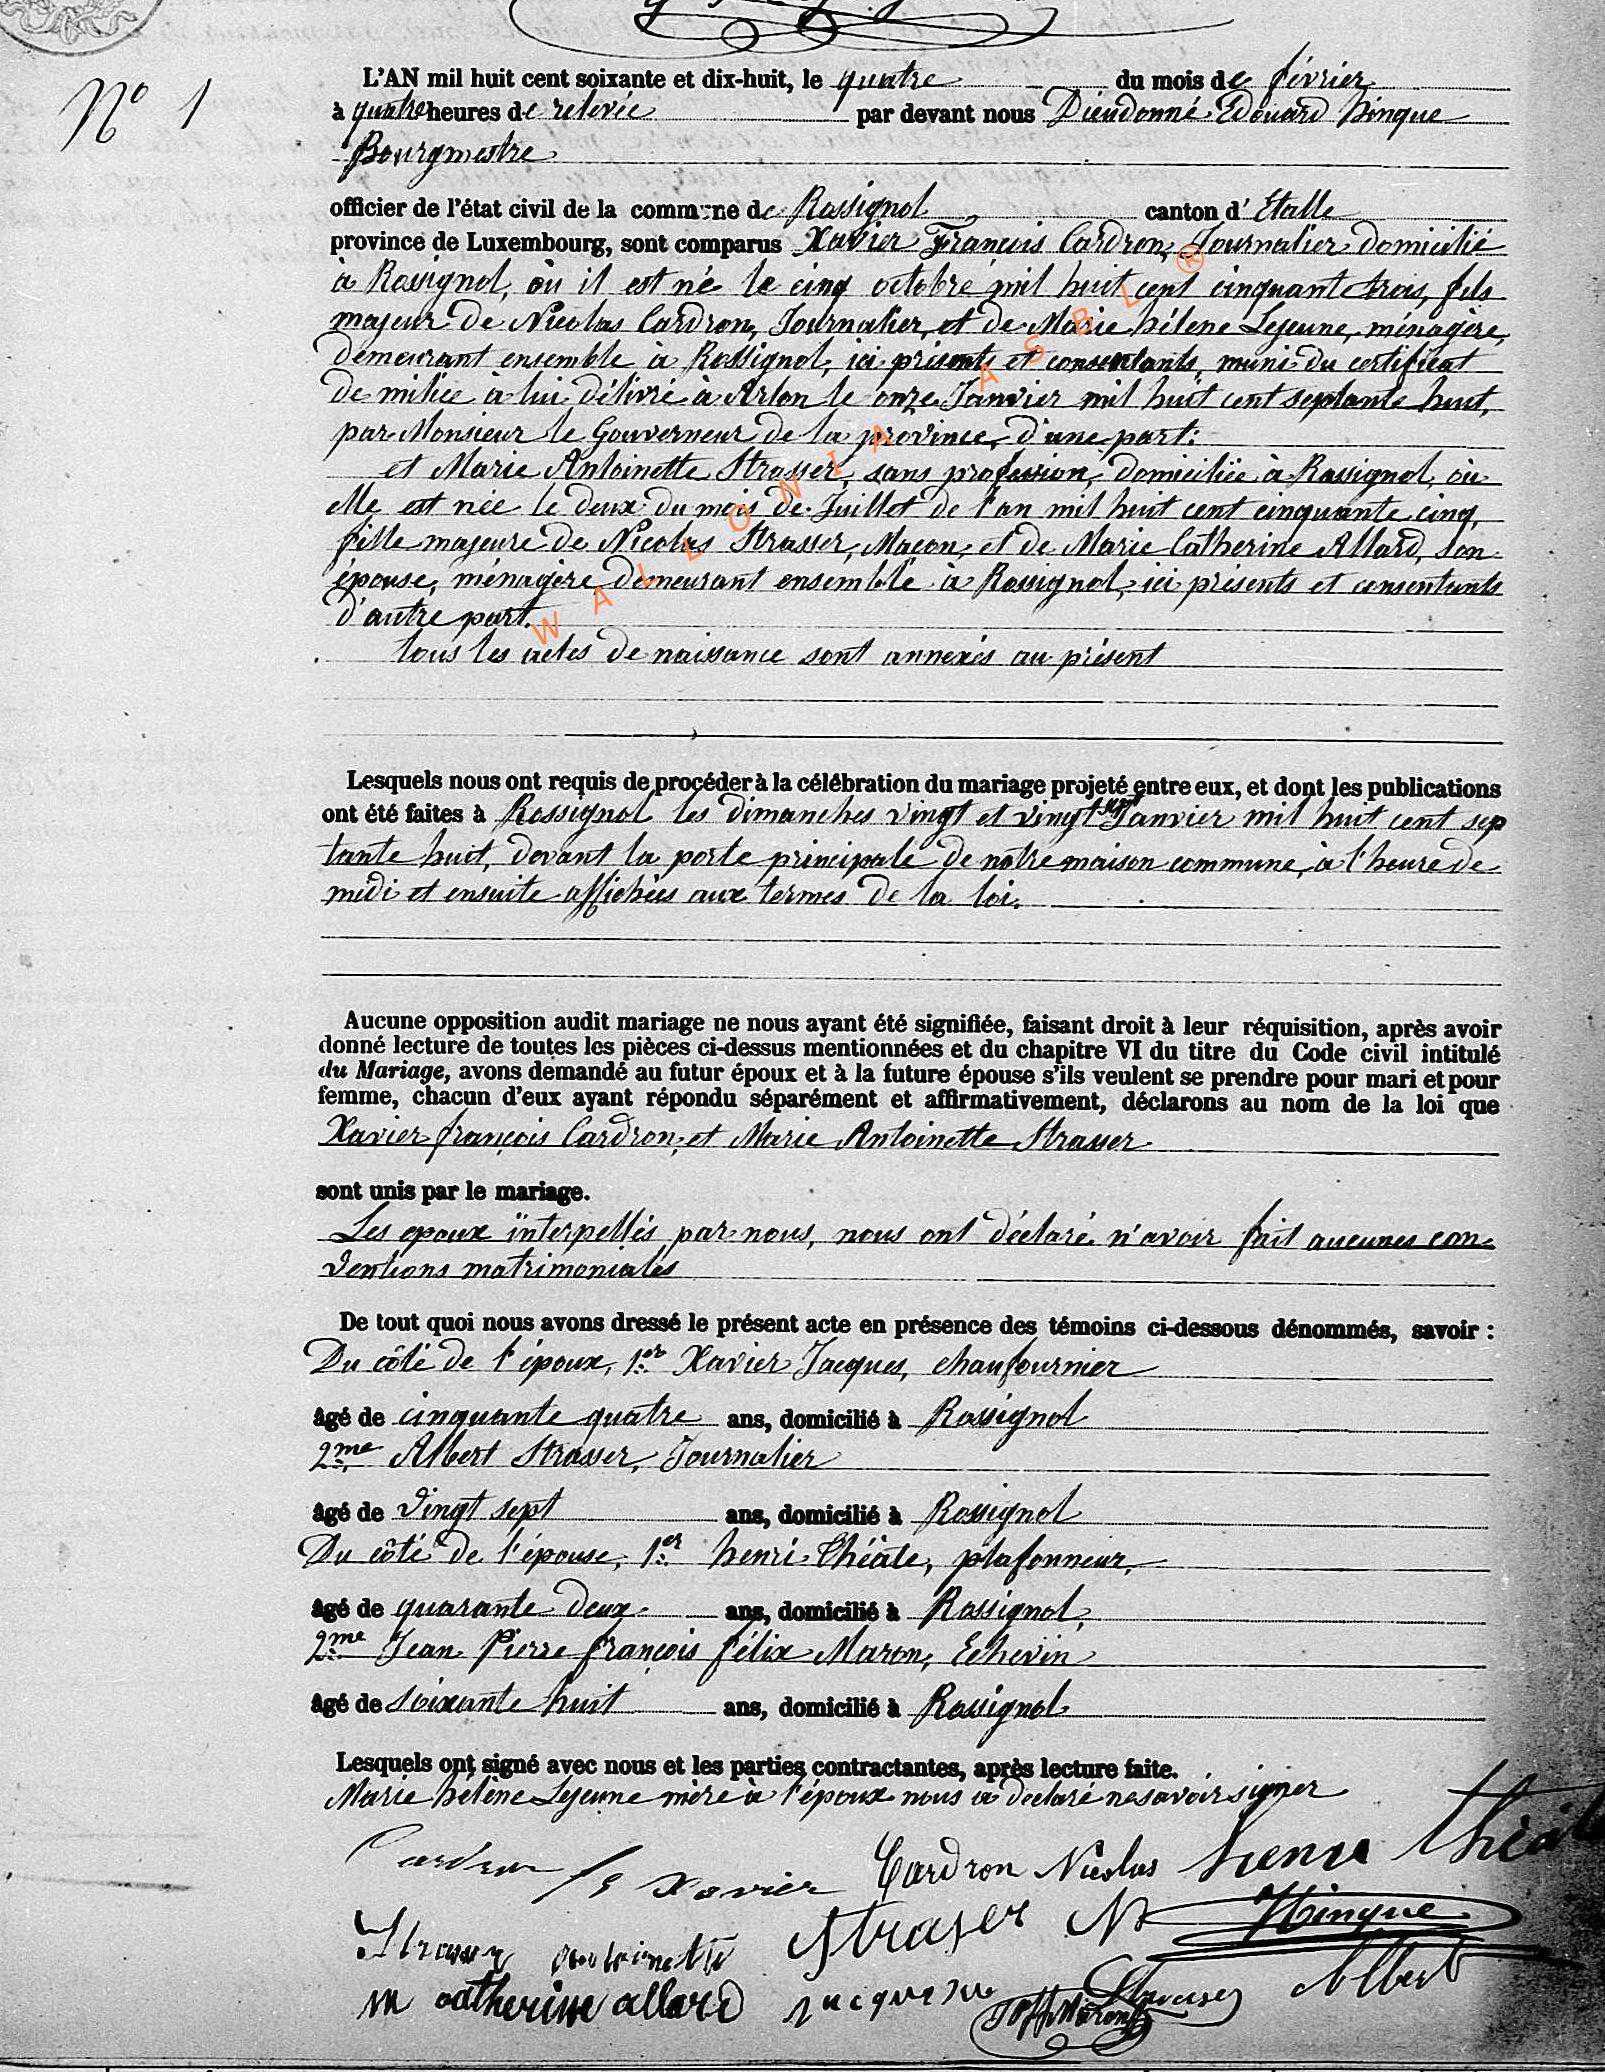 N° 1
L'AN mil huit cent soixante et dix-huit, le quatre du mois de février
à quatre heures de relevée par devant nous Dieudonné Edouard Hinque
Bourgmestre
officier de l'état civil de la commune de Rossignol canton d' Etalle
province de Luxembourg, sont comparus Xavier François Cardron, Journalier domicilié
à Rossignol, où il est né le cinq octobre mil huit cent cinquant trois, fils
majeur de Nicolas Cardron, Journalier, et de Marie hélene Lejeune, ménagère,
demeurant ensemble à Rossignol, ici présents et consentants, muni du certificat
de milice à lui délivré à Arlon le onze Janvier mil huit cent septante huit,
par Monsieur le Gouverneur de la province, d'une part:
et Marie Antoinette Strasser, sans profession, domiciliée à Rossignol, où
elle est née le deux du mois de Juillet de l'an mil huit cent cinquante cinq,
fille majeure de Nicolas Strasser, Maçon, et de Marie Catherine Allard, son
épouse, ménagère demeurant ensemble à Rossignol, ici présents et consentants
d'autre part.
tous les actes de naissance sont annexés au présent
WALLONIA ASBL ®
Lesquels nous ont requis de procéder à la célébration du mariage projeté entre eux, et dont les publications
ont été faites à Rossignol les dimanches vingt et vingt sept Janvier mil huit cent sep
tante huit, devant la porte principale de notre maison commune, à l'heure de
midi et ensuite affichées aux termes de la loi.
Aucune opposition audit mariage ne nous ayant été signifiée, faisant droit à leur réquisition, après avoir
donné lecture de toutes les pièces ci-dessus mentionnées et du chapitre VI du titre du Code civil intitulé
du Mariage, avons demandé au futur époux et à la future épouse s'ils veulent se prendre pour mari et pour
femme, chacun d'eux ayant répondu séparément et affirmativement, déclarons au nom de la loi que
Xavier françois Cardron, et Marie Antoinette Strasser
sont unis par le mariage.
Les epoux interpellés par nous, nous ont déclaré n'avoir fait aucunes con
ventions matrimoniales
De tout quoi nous avons dressé le présent acte en présence des témoins ci-dessous dénommés, savoir :
Du côté de l'époux, 1er Xavier Jacques, chaufournier
âgé de cinquante quatre ans, domicilié à Rossignol
2me Albert Strasser, Journalier
âgé de vingt sept ans, domicilié à Rossignol
Du côté de l'épouse, 1er henri Théâte, plafonneur,
âgé de quarante deux ans, domicilié à Rossignol,
2me Jean Pierre françois félix Maron, Echevin
âgé de soixante huit ans, domicilié à Rossignol
Lesquels ont signé avec nous et les parties contractantes, après lecture faite.
Marie hélène Lejeune mère à l'époux nous a declaré ne savoir signer
Cardron Xavier Cardron Nicolas
Strasser antoinette Straser N Hinque
m catherine allard Strasser Albert